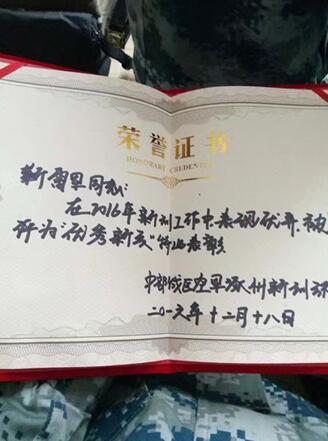 荣誉证书
HONORARY CREDENTIAL
同志:
在2016年新训工作中表现优异,被
评为"优秀新兵"特此表彰
中部战区空军涿州新训
二〇一六年十二月十八日